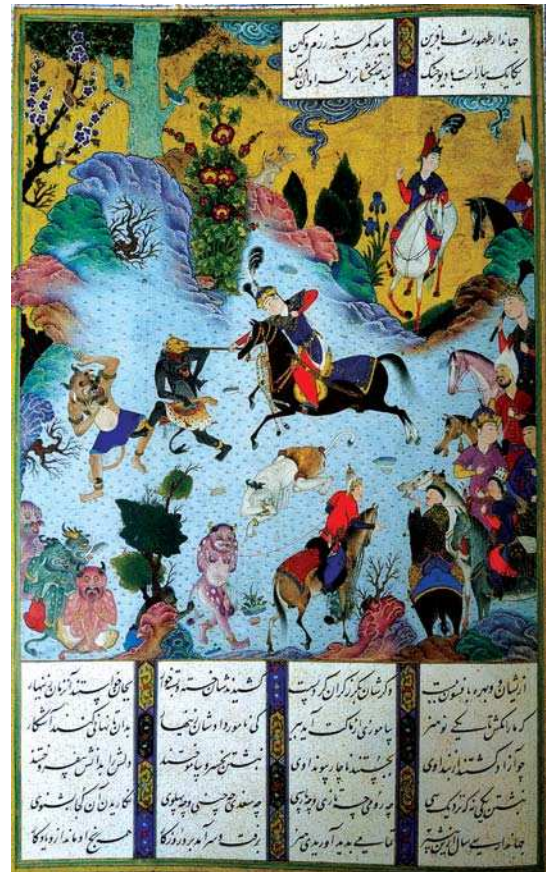 جهاندار طهمورث بافرین بیامد کمربسته رزم و کین
یکایک بیاراست با دیو جنگ نبد جنگشانرا فراوان درنگ
ازیشان دو بهره بافسون ببست دگرشان بگرز گران کرد پست کشیدندشان خسته و بسته خوار بجان خواستند آنزمان زینهار
که ما را مکش تا یکی نو هنر بیاموزی از ماکت آید ببر کی نامور دادشان زینهار بدان تا نهانی کنند آشکار
چو آزاد گشتند از بند اوی بجستند ناچار پیوند اوی نبشتن بخسرو بیاموختند دلش را بدانش برافروختند
نبشتن یکی نه که نزدیک سی چه رومی چه تازی و چه پارسی چه سغدی چه چینی و چه پهلوی نگاریدن آن کجا بشنوی
جهاندار سی سال ازین بیشتر پدید آوریدی هنر برفت و سرآمد برو روزگار همه رنج او ماند ازو یادگار